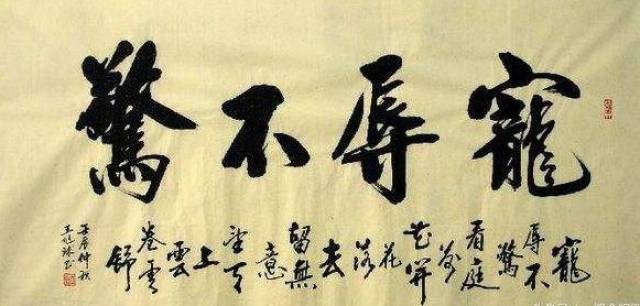 寵辱不驚
寵
辱不驚
看庭
前
花開
花落
去
留無
意
望天
上雲
卷雲
舒
仲秋